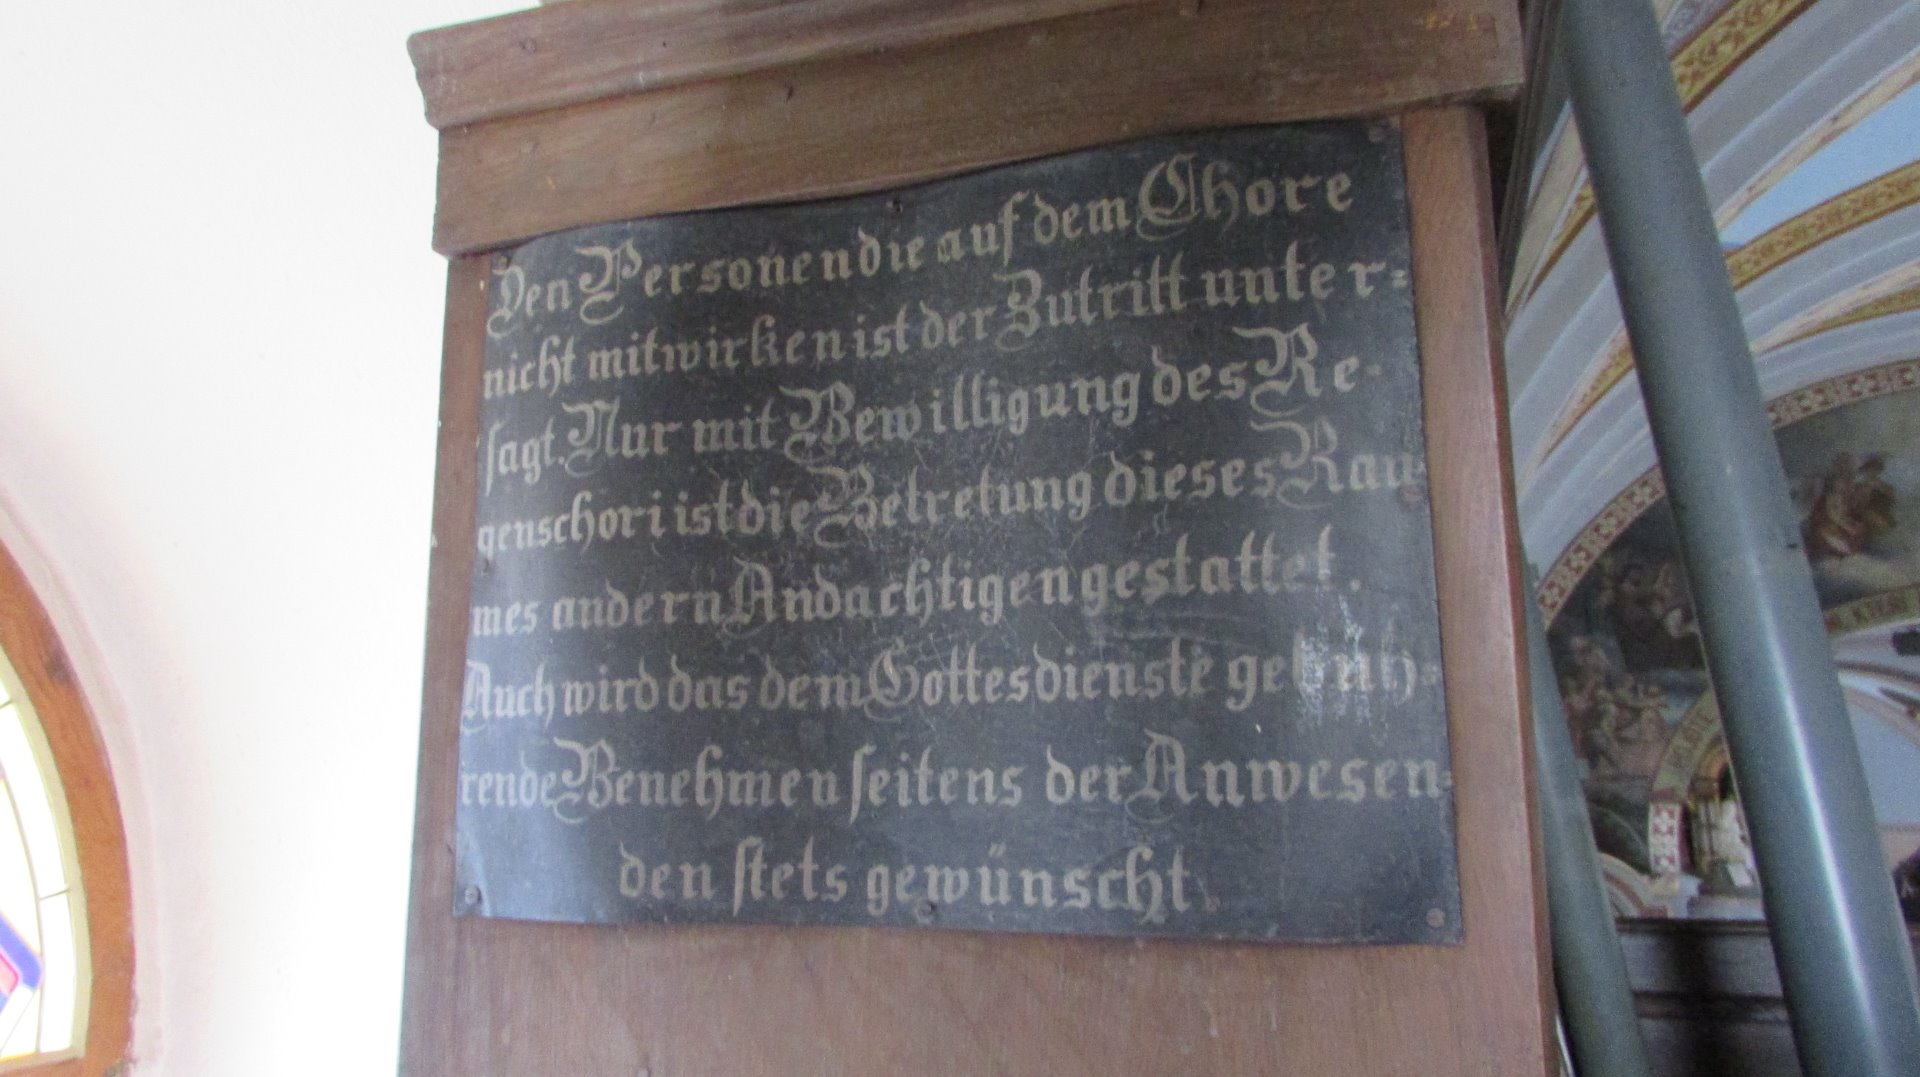 Den Person̄en die auf dem Chore
nicht mitwirken ist der Zutritt unter-
sagt. Nur mit Bewilligung des Re-
genschori ist die Betretung dieses Rau-
mes andern Andächtigen gestattet.
Auch wird das dem Gottesdienste gebüh-
rende Benehmen seitens der Anwesen-
den stets gewünscht.